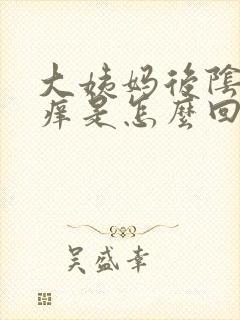 大姨妈后陰
痒是怎麼回
吴盛幸